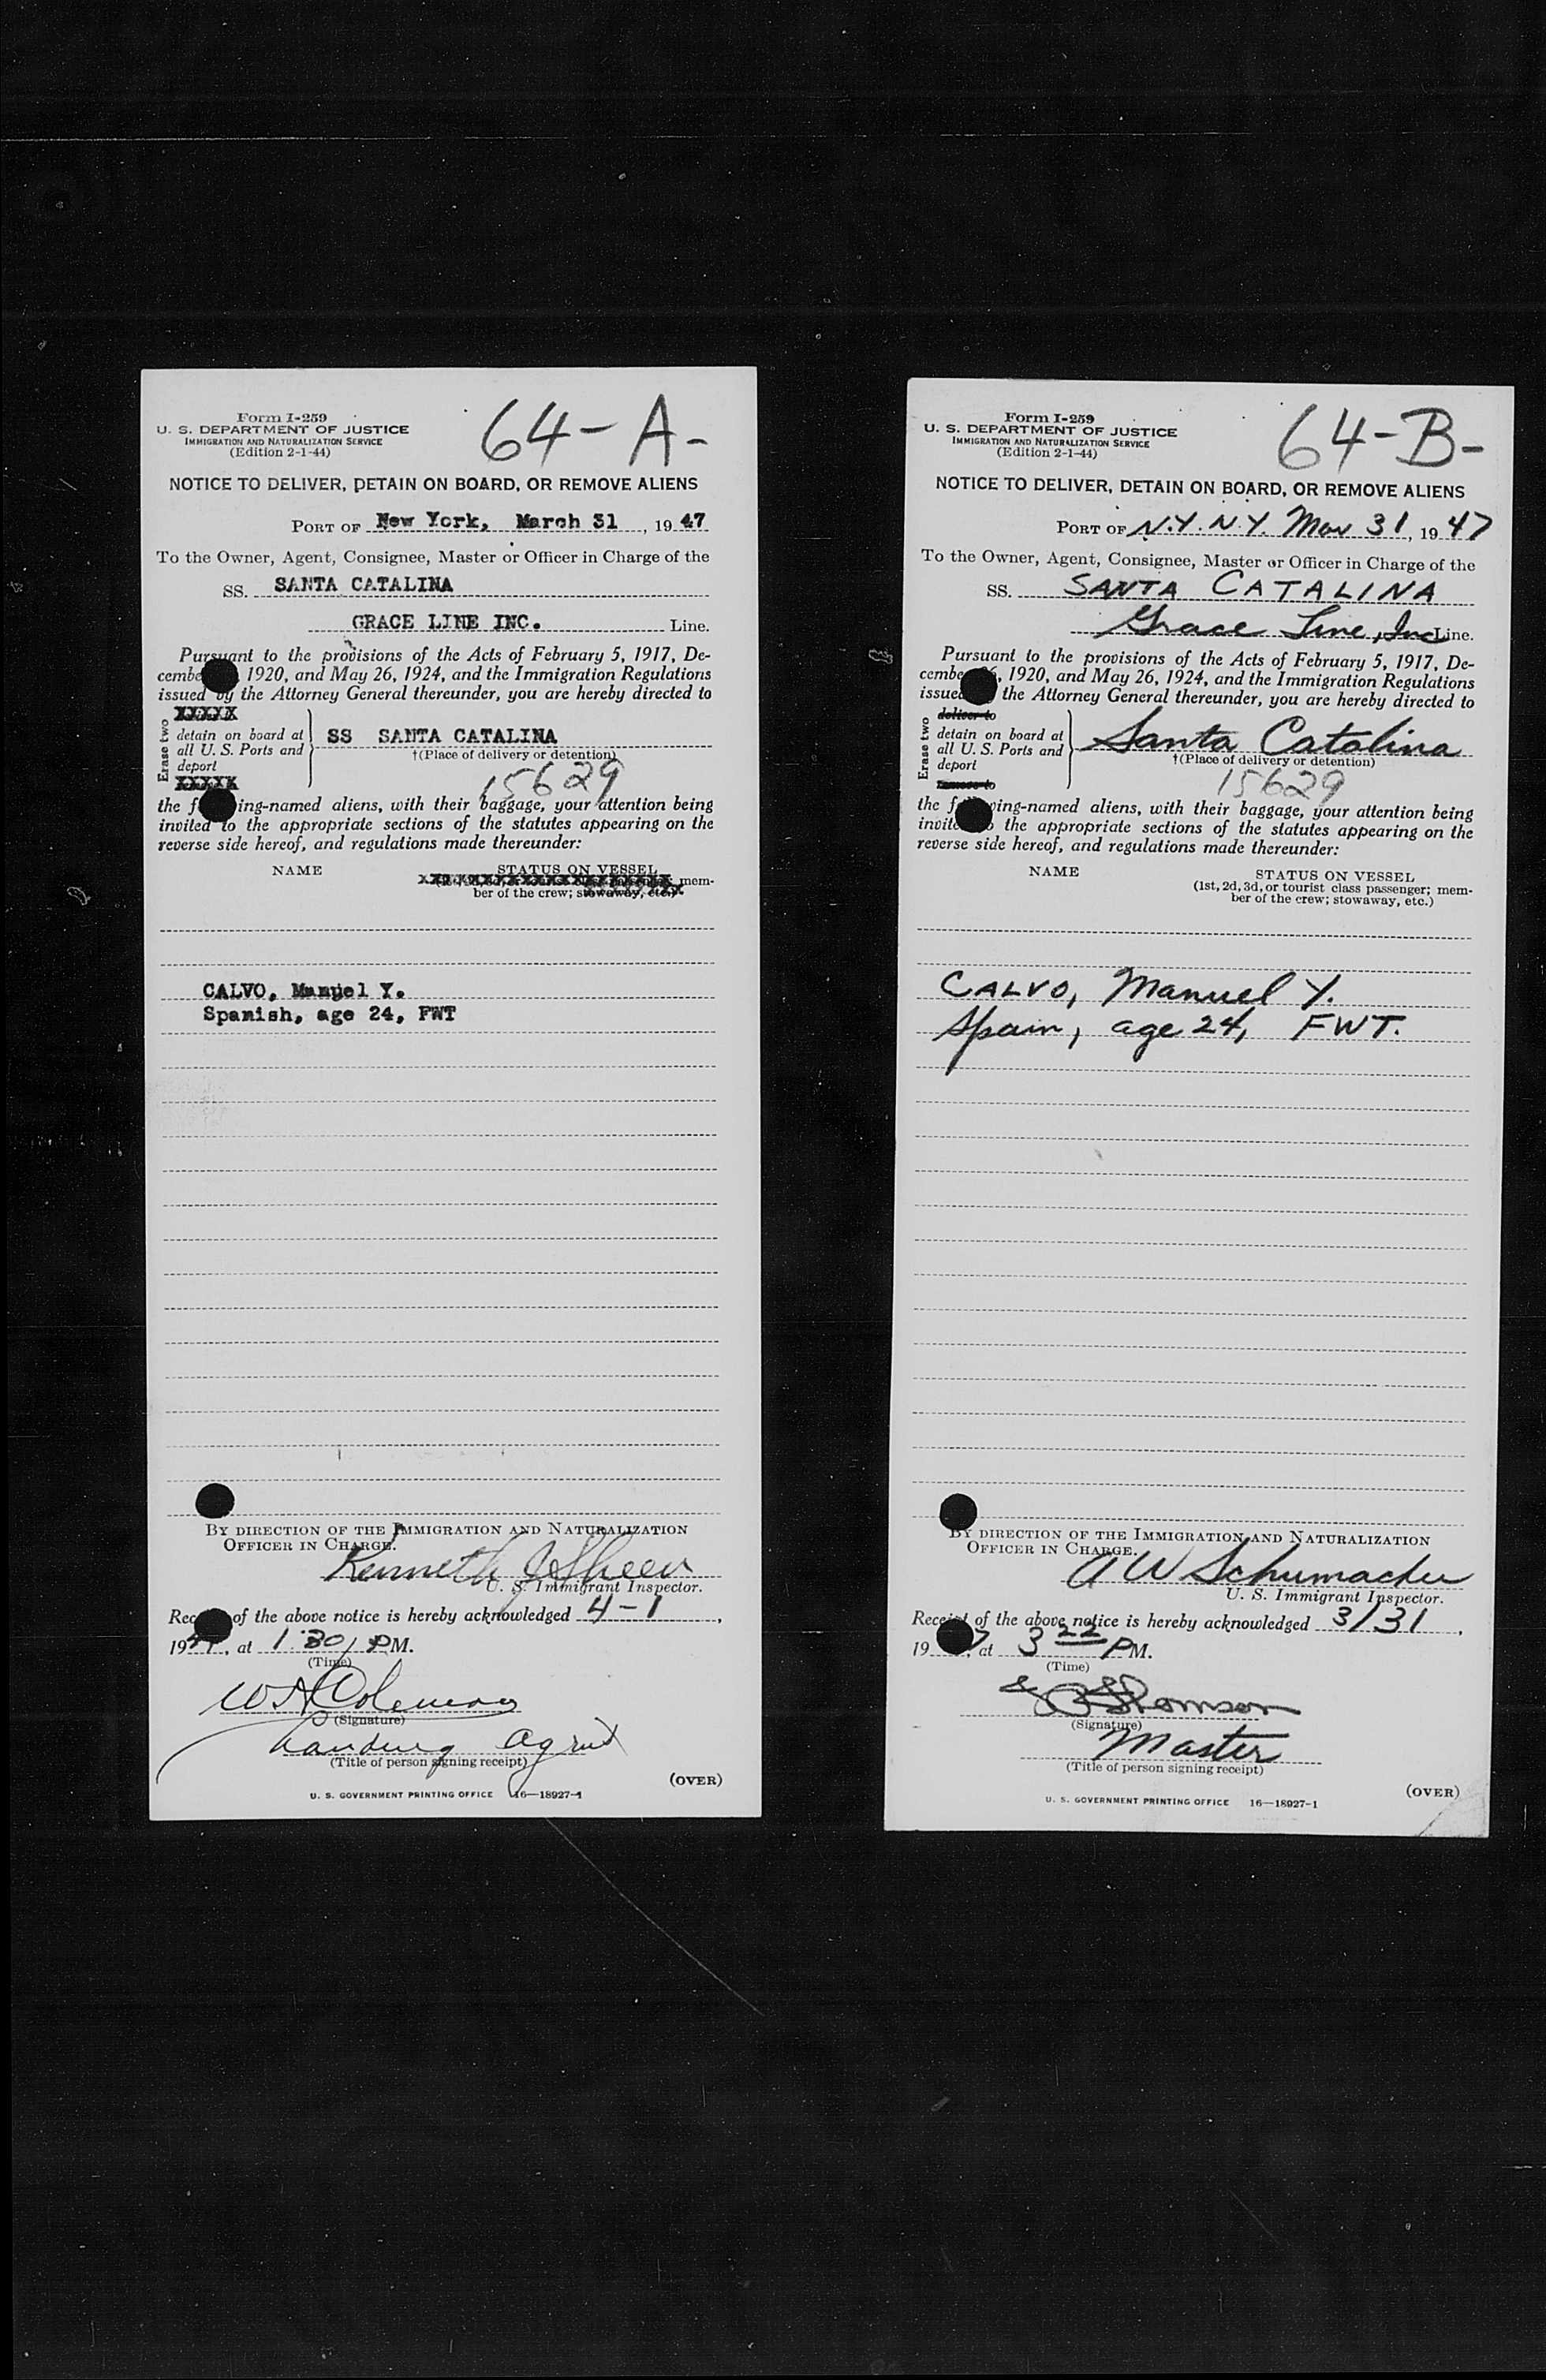 Form I-259
U. S. DEPARTMENT OF JUSTICE
IMMIGRATION AND NATURALIZATION SERVICE
(Edition 2-1-44)
64-A-
NOTICE TO DELIVER, DETAIN ON BOARD, OR REMOVE ALIENS
PORT OF New York, March 31, 1947
To the Owner, Agent, Consignee, Master or Officer in Charge of the
SS. SANTA CATALINA
GRACE LINE INC. Line.
Pursuant to the provisions of the Acts of February 5, 1917, De-
cembe 1920, and May 26, 1924, and the Immigration Regulations
issued by the Attorney General thereunder, you are hereby directed to
Erase two
XXXXX
detain on board at
all U. S. Ports and
deport
XXXXX
SS SANTA CATALINA
†(Place of delivery or detention)
15629
the f ing-named aliens, with their baggage, your attention being
invited to the appropriate sections of the statutes appearing on the
reverse side hereof, and regulations made thereunder:
NAME STATUS ON VESSEL
mem-
ber of the crew; stowaway, etc.)
CALVO, Manuel Y.
Spanish, age 24, FWT
BY DIRECTION OF THE IMMIGRATION AND NATURALIZATION
OFFICER IN CHARGE.
Kenneth J Sheer
U. S. Immigrant Inspector.
Rec of the above notice is hereby acknowledged 4-1,
1947, at 1:30 PM.
(Time)
W A Coleman
(Signature)
Landing Agent
(Title of person signing receipt)
(OVER)
U. S. GOVERNMENT PRINTING OFFICE 16—18927-1
Form I-259
U. S. DEPARTMENT OF JUSTICE
IMMIGRATION AND NATURALIZATION SERVICE
(Edition 2-1-44)
64-B-
NOTICE TO DELIVER, DETAIN ON BOARD, OR REMOVE ALIENS
PORT OF N.Y. N.Y. Mar 31, 1947
To the Owner, Agent, Consignee, Master or Officer in Charge of the
SS. SANTA CATALINA
Grace Line, Inc Line.
Pursuant to the provisions of the Acts of February 5, 1917, De-
cembe 6, 1920, and May 26, 1924, and the Immigration Regulations
issue the Attorney General thereunder, you are hereby directed to
Erase two
deliver to
detain on board at
all U. S. Ports and
deport
remove to
Santa Catalina
†(Place of delivery or detention)
15629
the f ving-named aliens, with their baggage, your attention being
invite the appropriate sections of the statutes appearing on the
reverse side hereof, and regulations made thereunder:
NAME STATUS ON VESSEL
(1st, 2d, 3d, or tourist class passenger; mem-
ber of the crew; stowaway, etc.)
CALVO, Manuel Y.
Spain, age 24, FWT.
BY DIRECTION OF THE IMMIGRATION AND NATURALIZATION
OFFICER IN CHARGE.
A W Schumacher
U. S. Immigrant Inspector.
Receipt of the above notice is hereby acknowledged 3/31,
19 7, at 3 22 PM.
(Time)
Thomson
(Signature)
Master
(Title of person signing receipt)
(OVER)
U. S. GOVERNMENT PRINTING OFFICE 16—18927-1